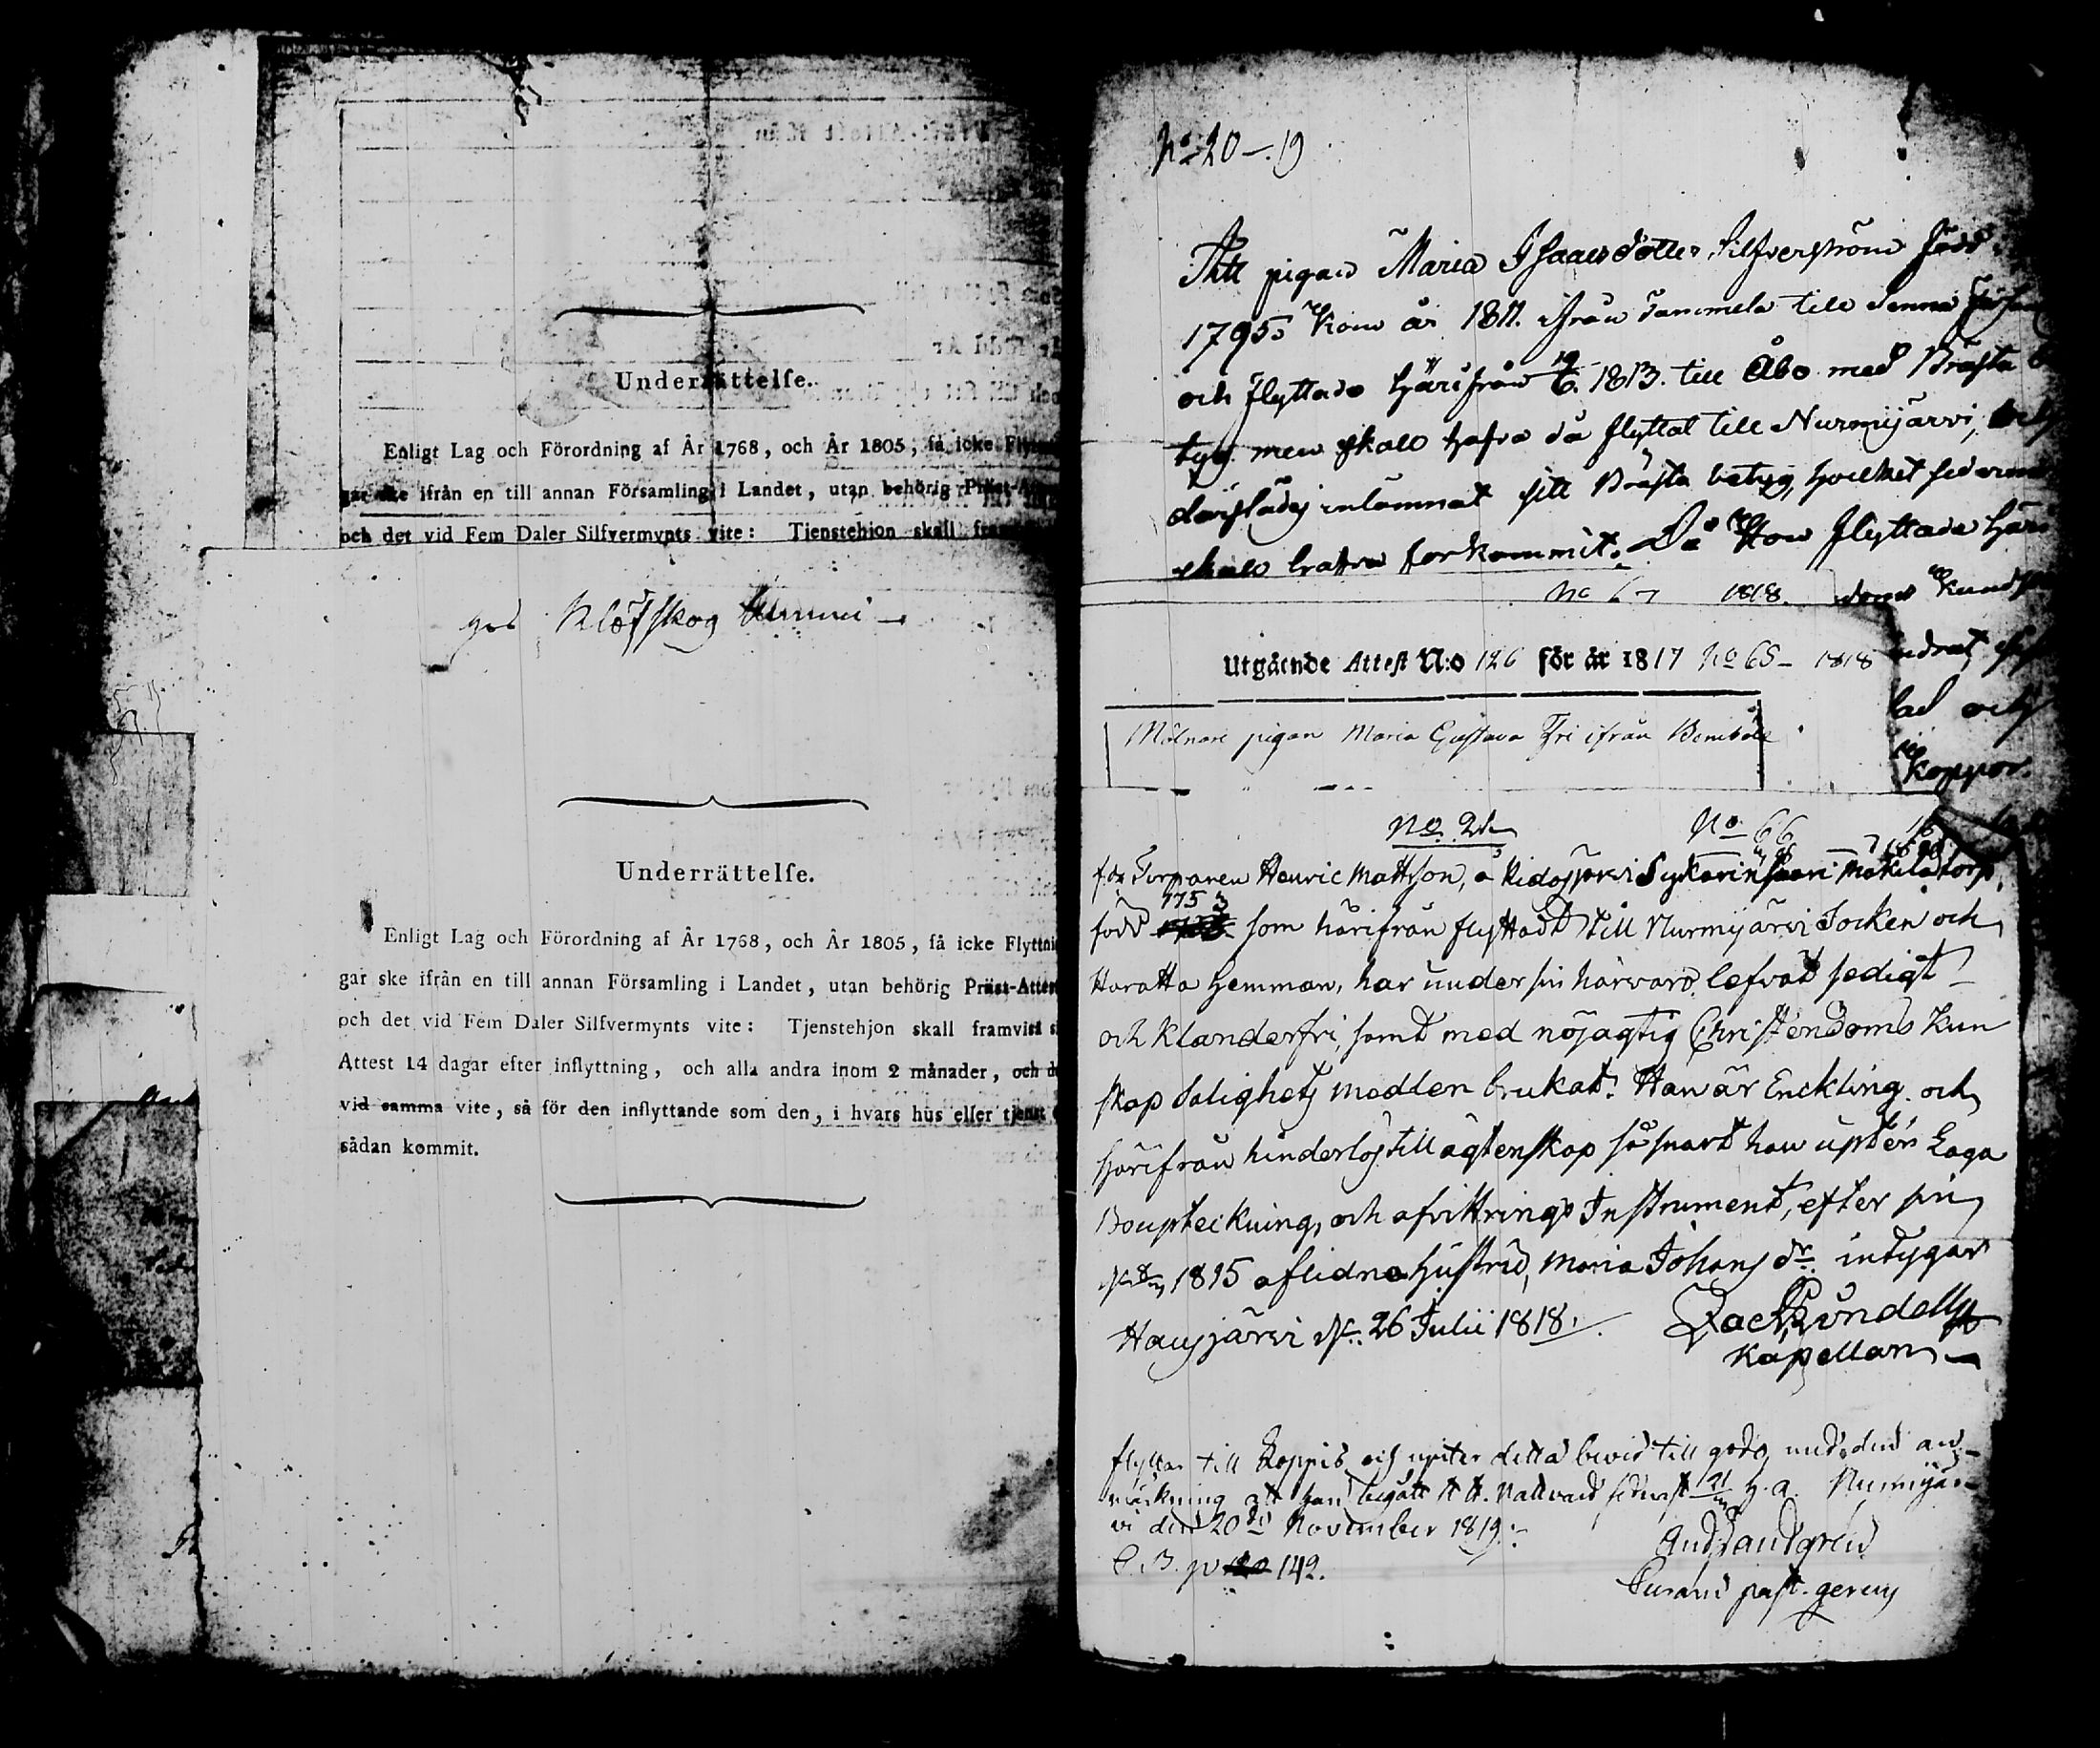 Underrättelse.
Enligt Lag och Förordning af År 1768, och År 1805, få icke
gar ske ifrån en till annan Församling i Landet, utan behörig
och det vid Fem Daler Silfvermynts vite: Tjenstehjon skall
Klöfskog
Underrättelse.
Enligt Lag och Förordning af År 1768, och År 1805, få icke Flyttni
gar ske ifrån en till annan Församling i Landet, utan behörig Präst-Attest
och det vid Fem Daler Silfvermynts vite: Tjenstehjon skall framvisa s
Attest 14 dagar efter inflyttning, och alla andra inom 2 månader, och d
vid samma vite, så för den inflyttande som den, i hvars hus eller tjenst
sådan kommit.
No 20 – 19
Att pigan Maria Isaacsdotter Silfverström född
1795 kom år 1811 ifrån Tammela till denna
och flyttade härifrån 1813. till Åbo med Prästa
tyg men skall hafva då flyttat till Nurmijärvi, och
därstädes inlämnat sitt Prästa betyg, hvilket sedermera
skall förkommit. Då Hon flyttade
No 67 1818.
Utgående Attest N:o 126 för år 1817 No 65 – 1818
lad och
koppor.
Mölnare pigan Maria Gustava Fri ifrån Bemböle
No 21 No 66
f.d. Torparen Henric Mattsson, å Kidojärvi Sykärinsaari Mäkilä torp,
född 1753 som härifrån flyttadt till Nurmijärvi Socken och
Haratta Hemman, har under sin härvaro lefvat sedigt
och Klanderfri, samt med nöjagtig Christendoms Kun
skap Salighets medlen brukat. Han är Enckling och
härifrån hinderlös till ägtenskap så snart han upter Laga
Boupteckning, och afvittrings Instrument, efter sin
1815 aflidna Hustru, Maria Johans dr. intygar
Hausjärvi d. 26 Julii 1818.
Zach Lundell
Kapellan
flyttar till Loppis och upter detta bevis till godo, med den an-
märkning att han begått H. H. Nattvard sednast h. a. Nurmijär-
vi den 20de November 1819.
C. B. p 142.
And Sandgren
past.